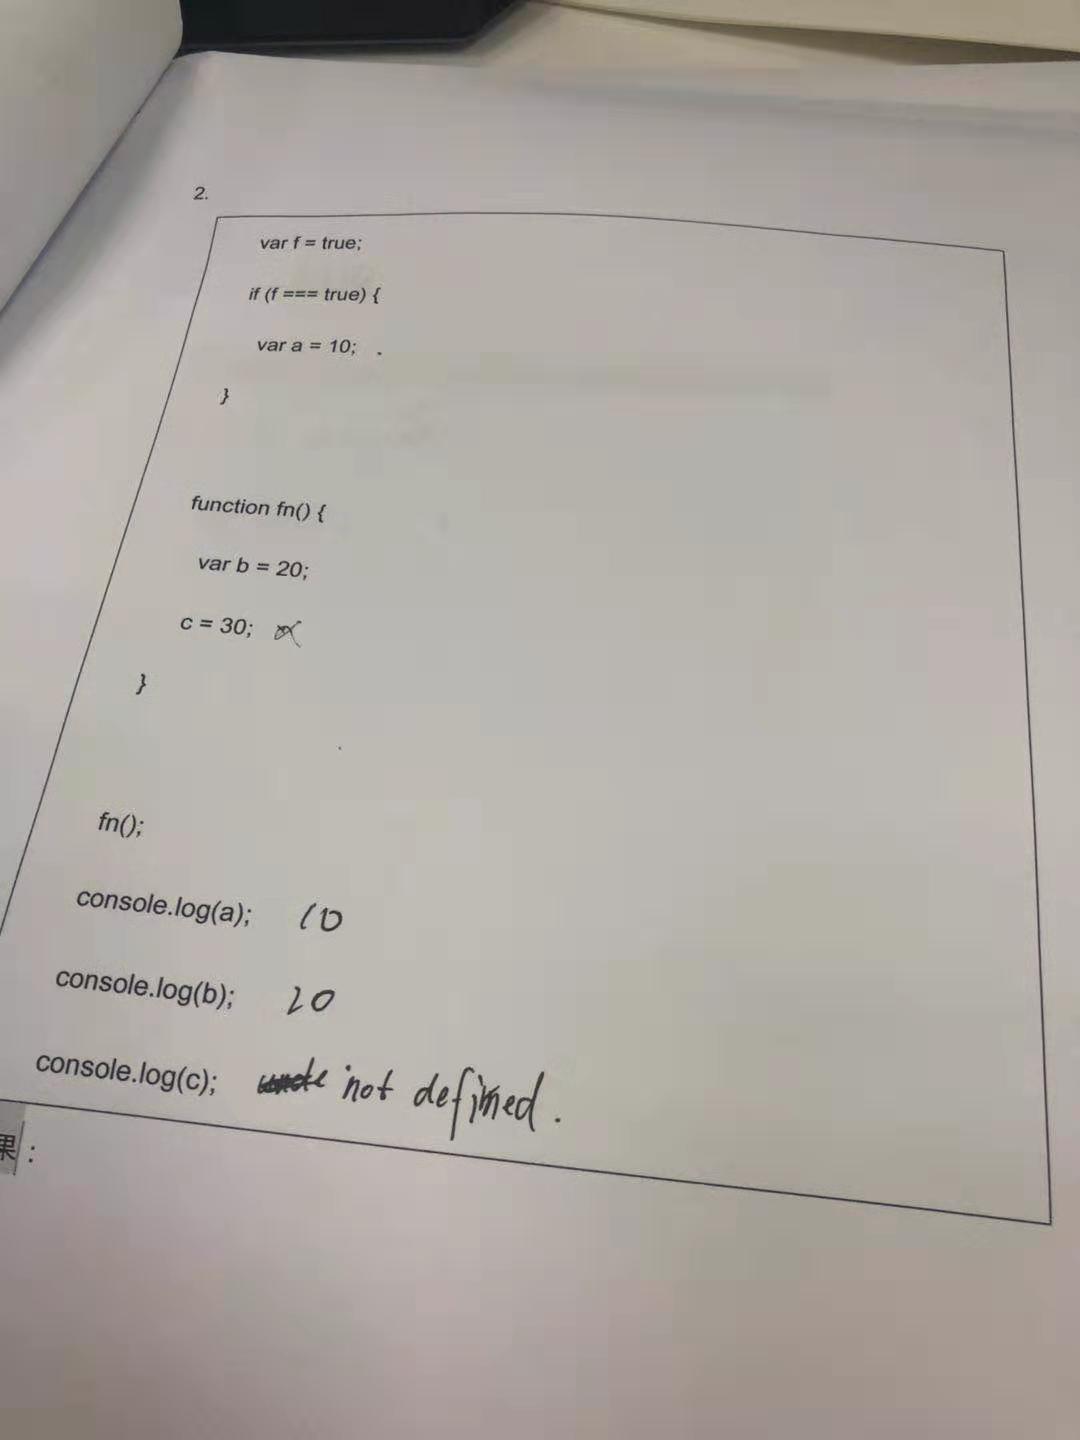 2.
var f = true;
if (f === true) {
var a = 10;
}
function fn() {
var b = 20;
c = 30;
}
fn();
console.log(a); 10
console.log(b); 20
console.log(c); not defined.
果: